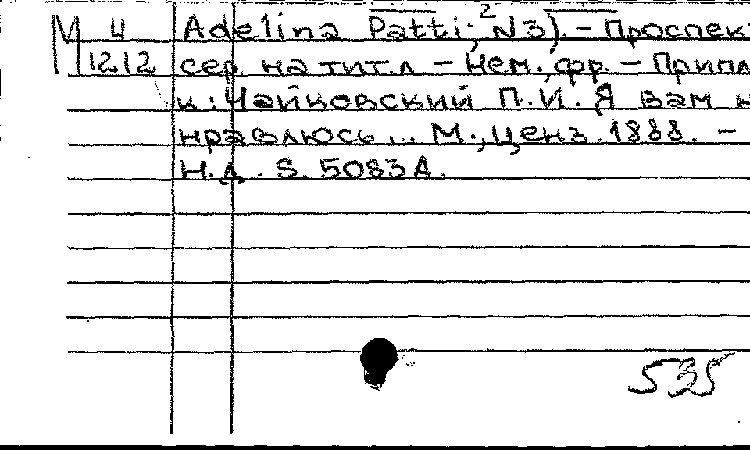 М 4 Adelina Patti; ² N3). – Проспек
1212 сер. на тит.л – Нем., фр. – Припл
к: Чайковский П.И. Я вам н
нравлюсь... М., ценз. 1888. –
Н.д. S. 5083 А.
535